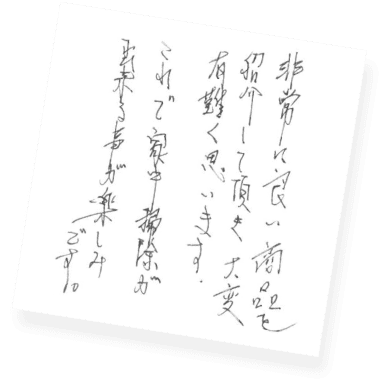 非常に良い商品を
紹介して頂き大変
有難く思います.
これで家中掃除が
出来る事が楽しみ
です。